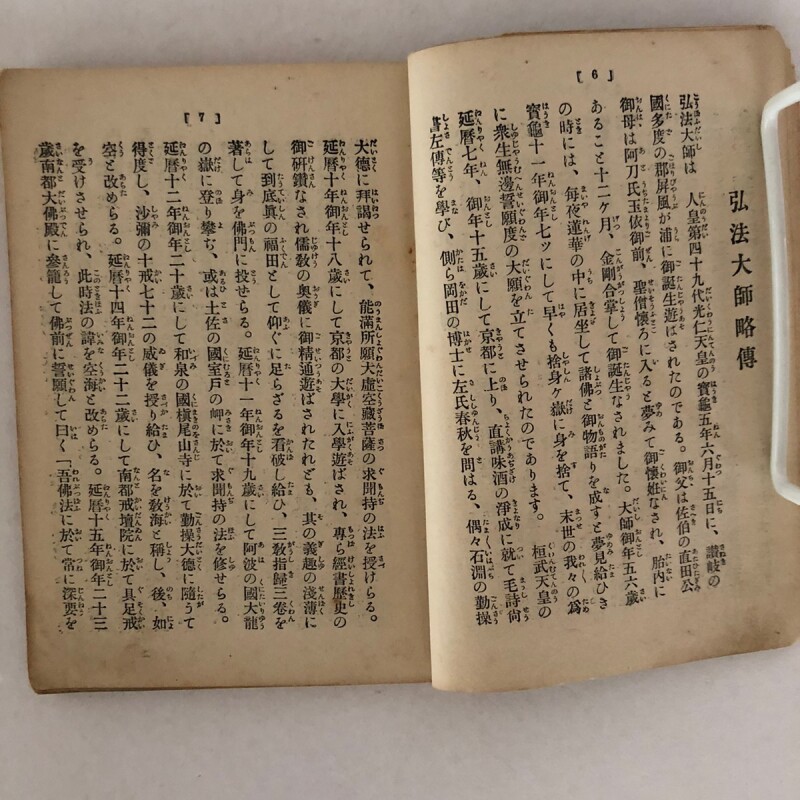 [6]
弘法大師略傳
弘法大師は 人皇第四十九代光仁天皇の寶龜五年六月十五日に、讃岐の
國多度の郡屏風が浦に御誕生遊ばされたのである。御父は佐伯の直田公
御母は阿刀氏玉依御前、聖僧懐ろに入ると夢みて御懐姙なされ、胎内に
あること十二ヶ月、金剛合掌して御誕生なされました。大師御年五六歳
の時には、毎夜蓮華の中に居坐して諸佛と御物語りを成すと夢見給ひき
寶龜十一年御年七ツにして早くも捨身ヶ嶽に身を捨て、末世の我々の爲
に衆生無邊誓願度の大願を立てさせられたのであります。 桓武天皇の
延暦七年、御年十五歳にして京都に上り、直講味酒の淨成に就て毛詩尙
書左傳等を學び、側ら岡田の博士に左氏春秋を問はる、偶々石淵の勤操
[7]
大德に拜謁せられて、能滿所願大虛空藏菩薩の求聞持の法を授けらる。
延暦十年御年十八歳にして京都の大學に入學遊ばされ、專ら經書歷史の
御硏鑽なされ儒敎の奧儀に御精通遊ばされたれども、其の義趣の淺薄に
して到底眞の福田として仰ぐに足らざるを看破し給ひ、三敎指歸三卷を
著して身を佛門に投せらる。延暦十一年御年十九歳にして阿波の國大龍
の嶽に登り攀ぢ、或は土佐の國室戸の岬に於て求聞持の法を修せらる。
延暦十二年御年二十歳にして和泉の國槇尾山寺に於て勤操大德に隨うて
得度し、沙彌の十戒七十二の威儀を授り給ひ、名を敎海と稱し、後、如
空と改めらる。延暦十四年御年二十二歳にして南都戒壇院に於て具足戒
を受けさせられ、此時法の諱を空海と改めらる。延暦十五年御年二十三
歳南都大佛殿に參籠して佛前に誓願して曰く「吾佛法に於て常に深要を